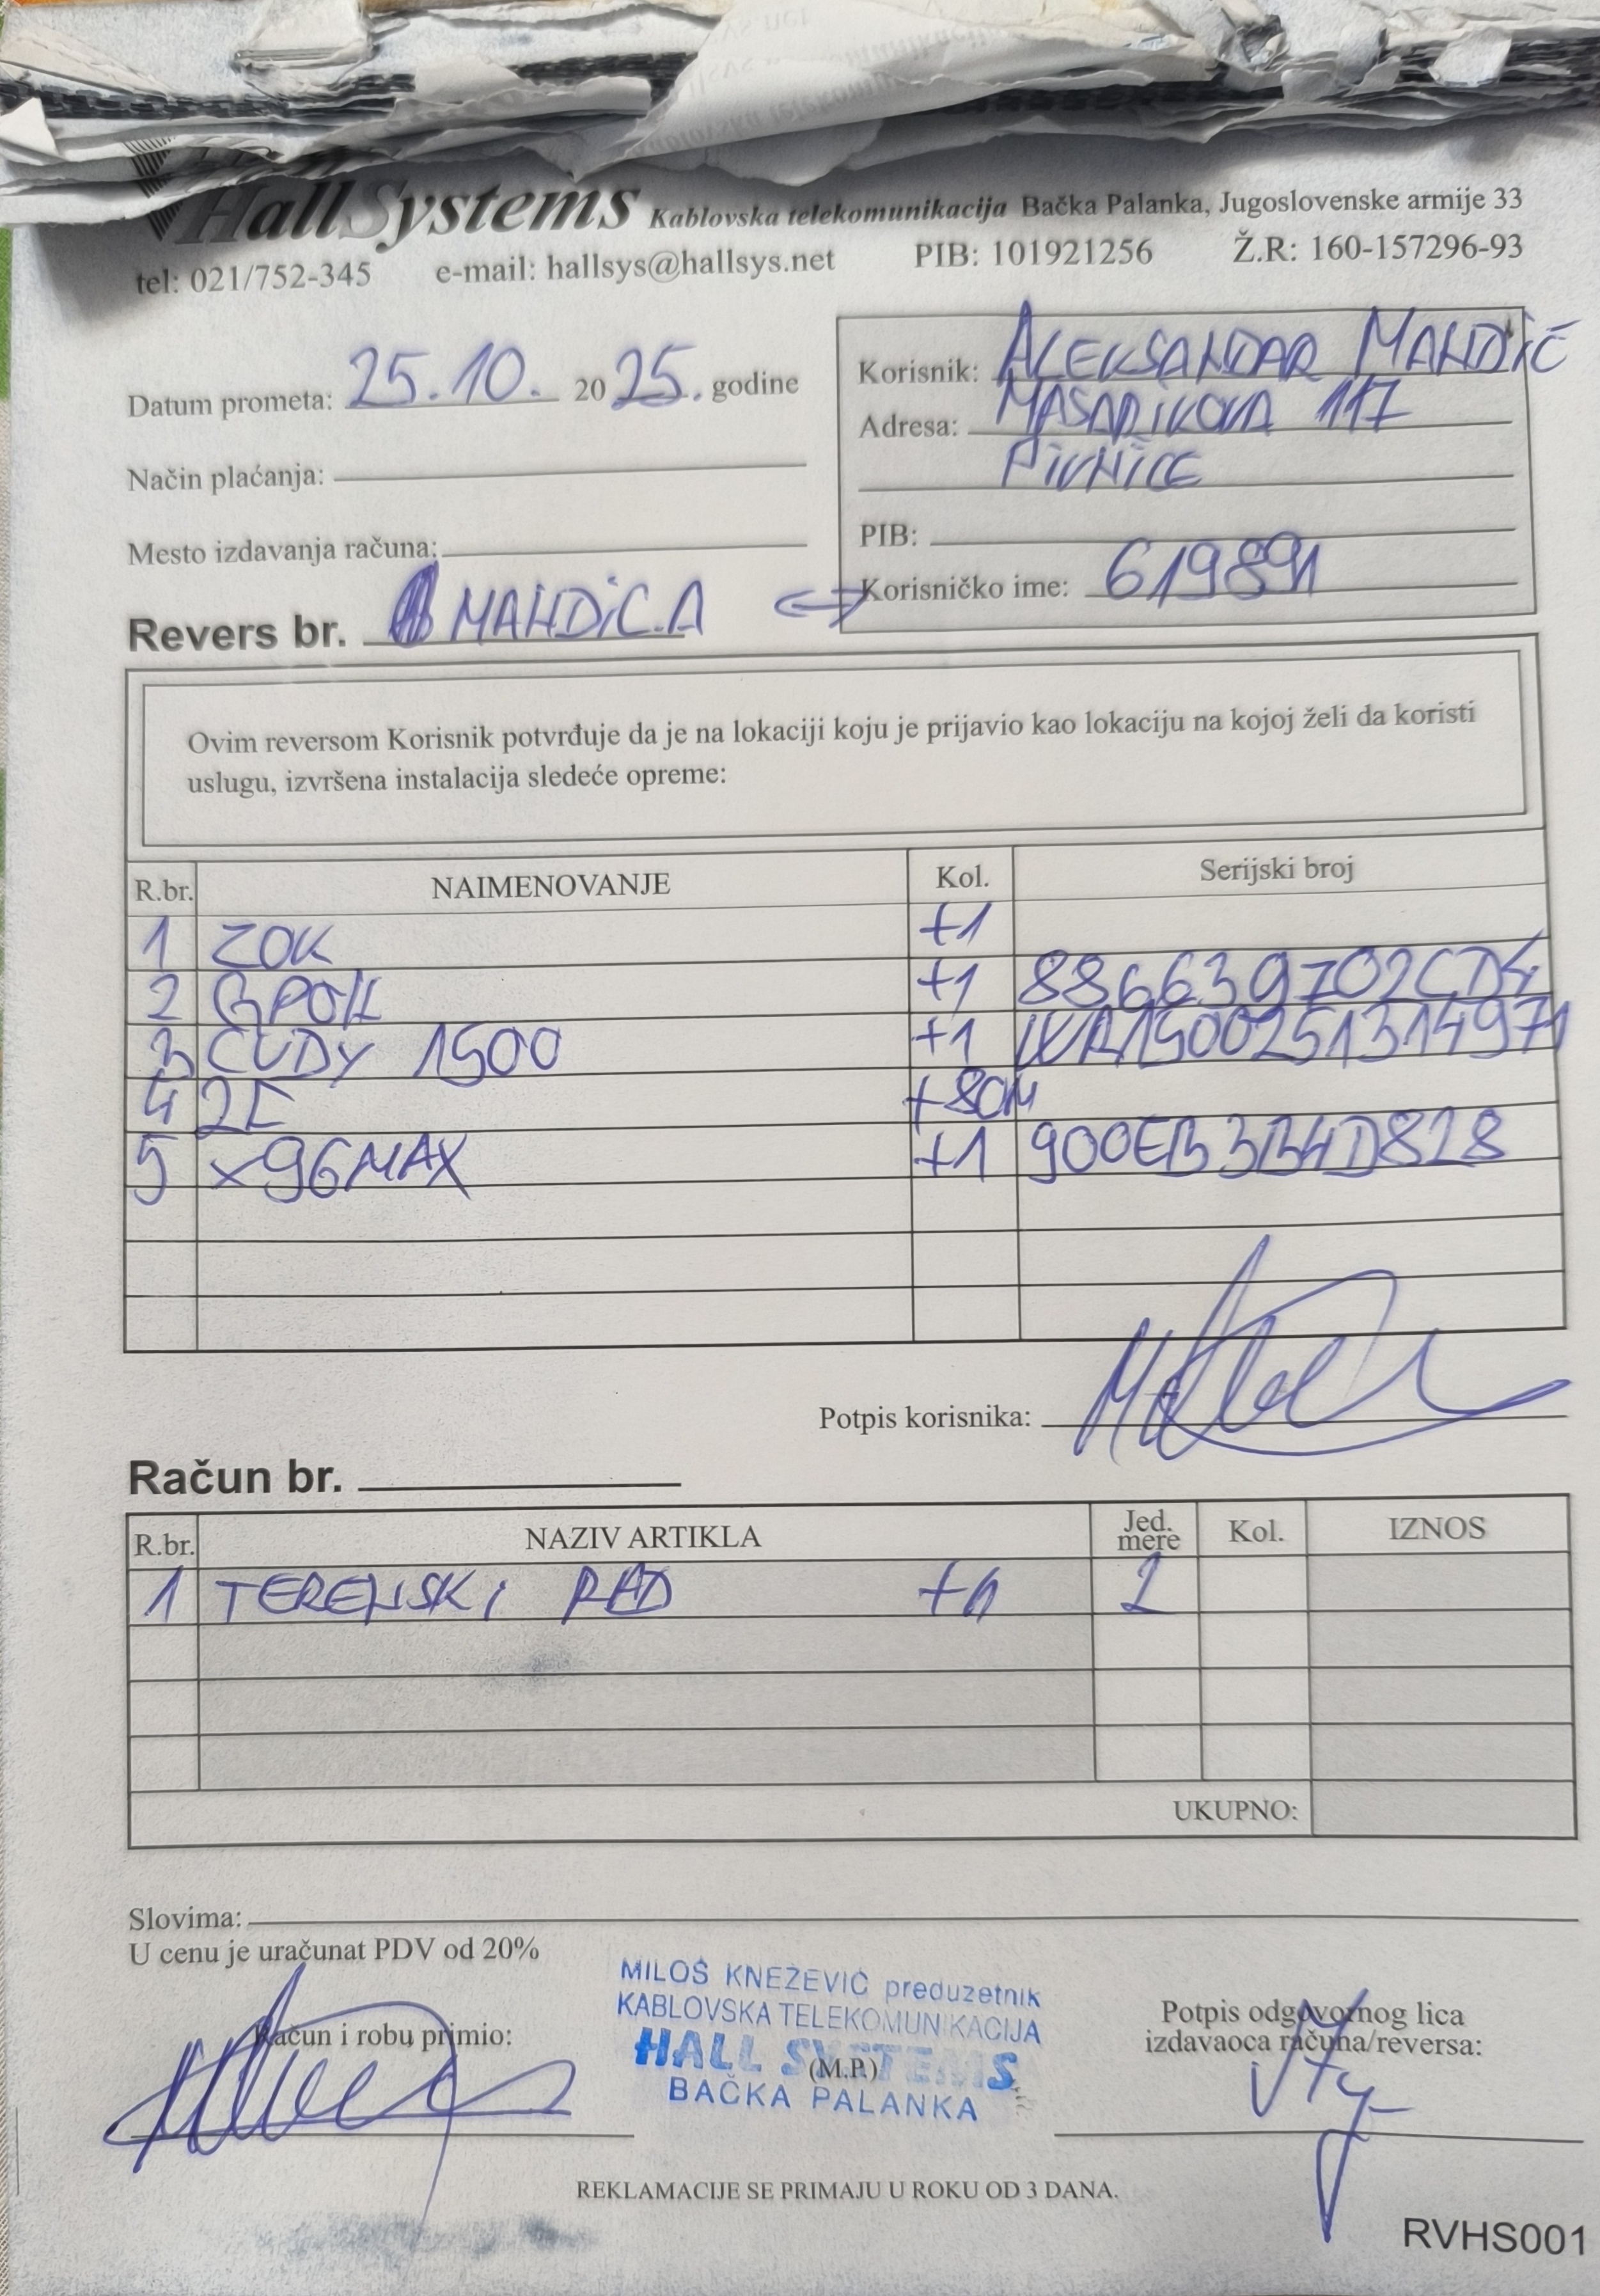 HallSystems Kablovska telekomunikacija Bačka Palanka, Jugoslovenske armije 33
tel: 021/752-345 e-mail: hallsys@hallsys.net PIB: 101921256 Ž.R: 160-157296-93
Datum prometa: 25.10. 2025. godine
Način plaćanja:
Mesto izdavanja računa:
Korisnik: ALEKSANDAR MANDIĆ
Adresa: MASARIKOVA 117
PIVNICE
PIB:
Korisničko ime: 619891
Revers br. MANDIC.A
Ovim reversom Korisnik potvrđuje da je na lokaciji koju je prijavio kao lokaciju na kojoj želi da koristi
uslugu, izvršena instalacija sledeće opreme:
R.br. NAIMENOVANJE Kol. Serijski broj
1 ZOK +1
2 GPON +1 886639702CD4
3 CUDY 1500 +1 WR1500251314971
4 2C +80M
5 X96MAX +1 900EB3B4D828
Potpis korisnika:
Račun br.
R.br. NAZIV ARTIKLA Jed. mere Kol. IZNOS
1 TERENSKI RAD +1 1
UKUPNO:
Slovima:
U cenu je uračunat PDV od 20%
Račun i robu primio:
MILOŠ KNEŽEVIĆ preduzetnik
KABLOVSKA TELEKOMUNIKACIJA
HALL SYSTEMS
(M.P.)
BAČKA PALANKA
Potpis odgovornog lica
izdavaoca računa/reversa:
REKLAMACIJE SE PRIMAJU U ROKU OD 3 DANA.
RVHS001